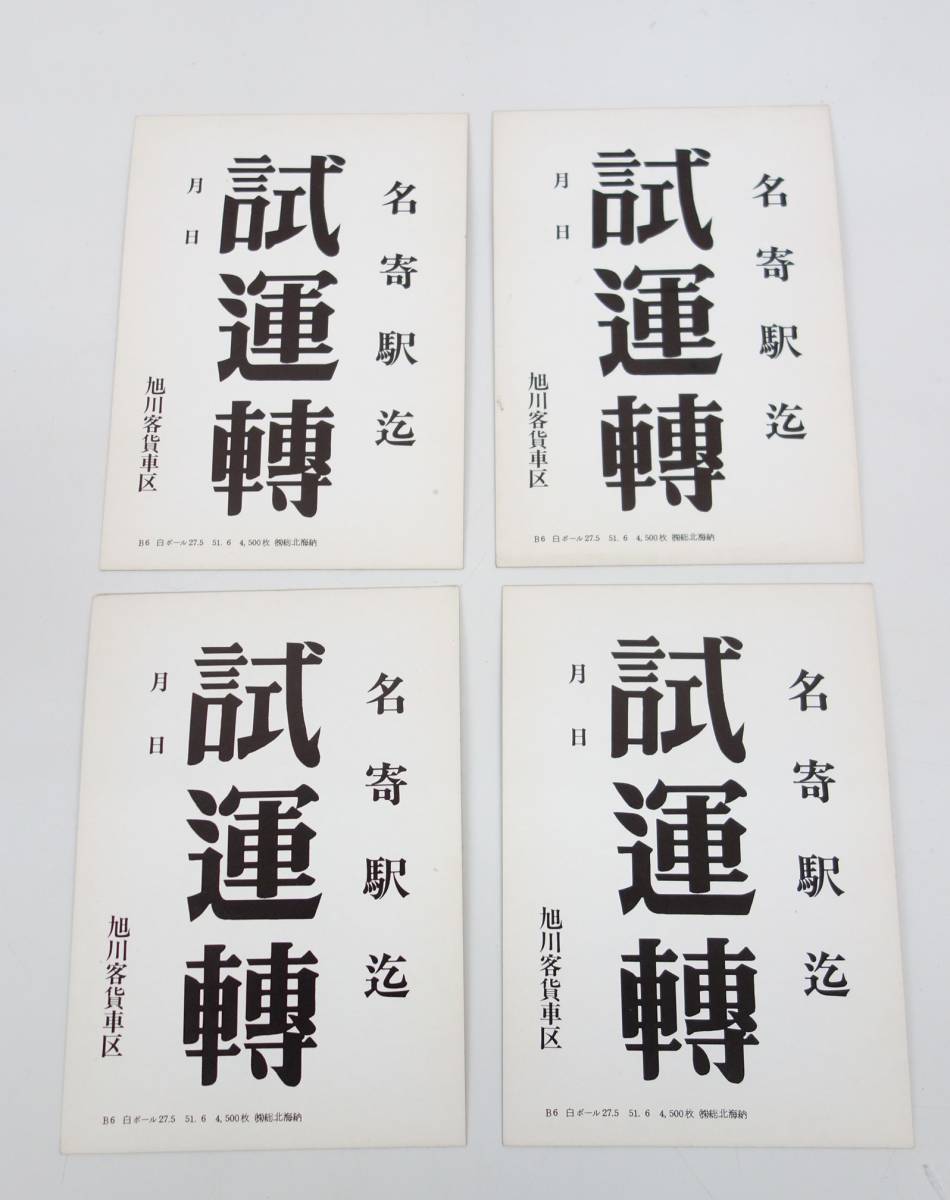 名寄駅迄
試運轉
月日
旭川客貨車区
B6 白ボール27.5 51.6 4,500枚 ㈱総北海納
名寄駅迄
試運轉
月日
旭川客貨車区
B6 白ボール27.5 51.6 4,500枚 ㈱総北海納
名寄駅迄
試運轉
月日
旭川客貨車区
B6 白ボール27.5 51.6 4,500枚 ㈱総北海納
名寄駅迄
試運轉
月日
旭川客貨車区
B6 白ボール27.5 51.6 4,500枚 ㈱総北海納